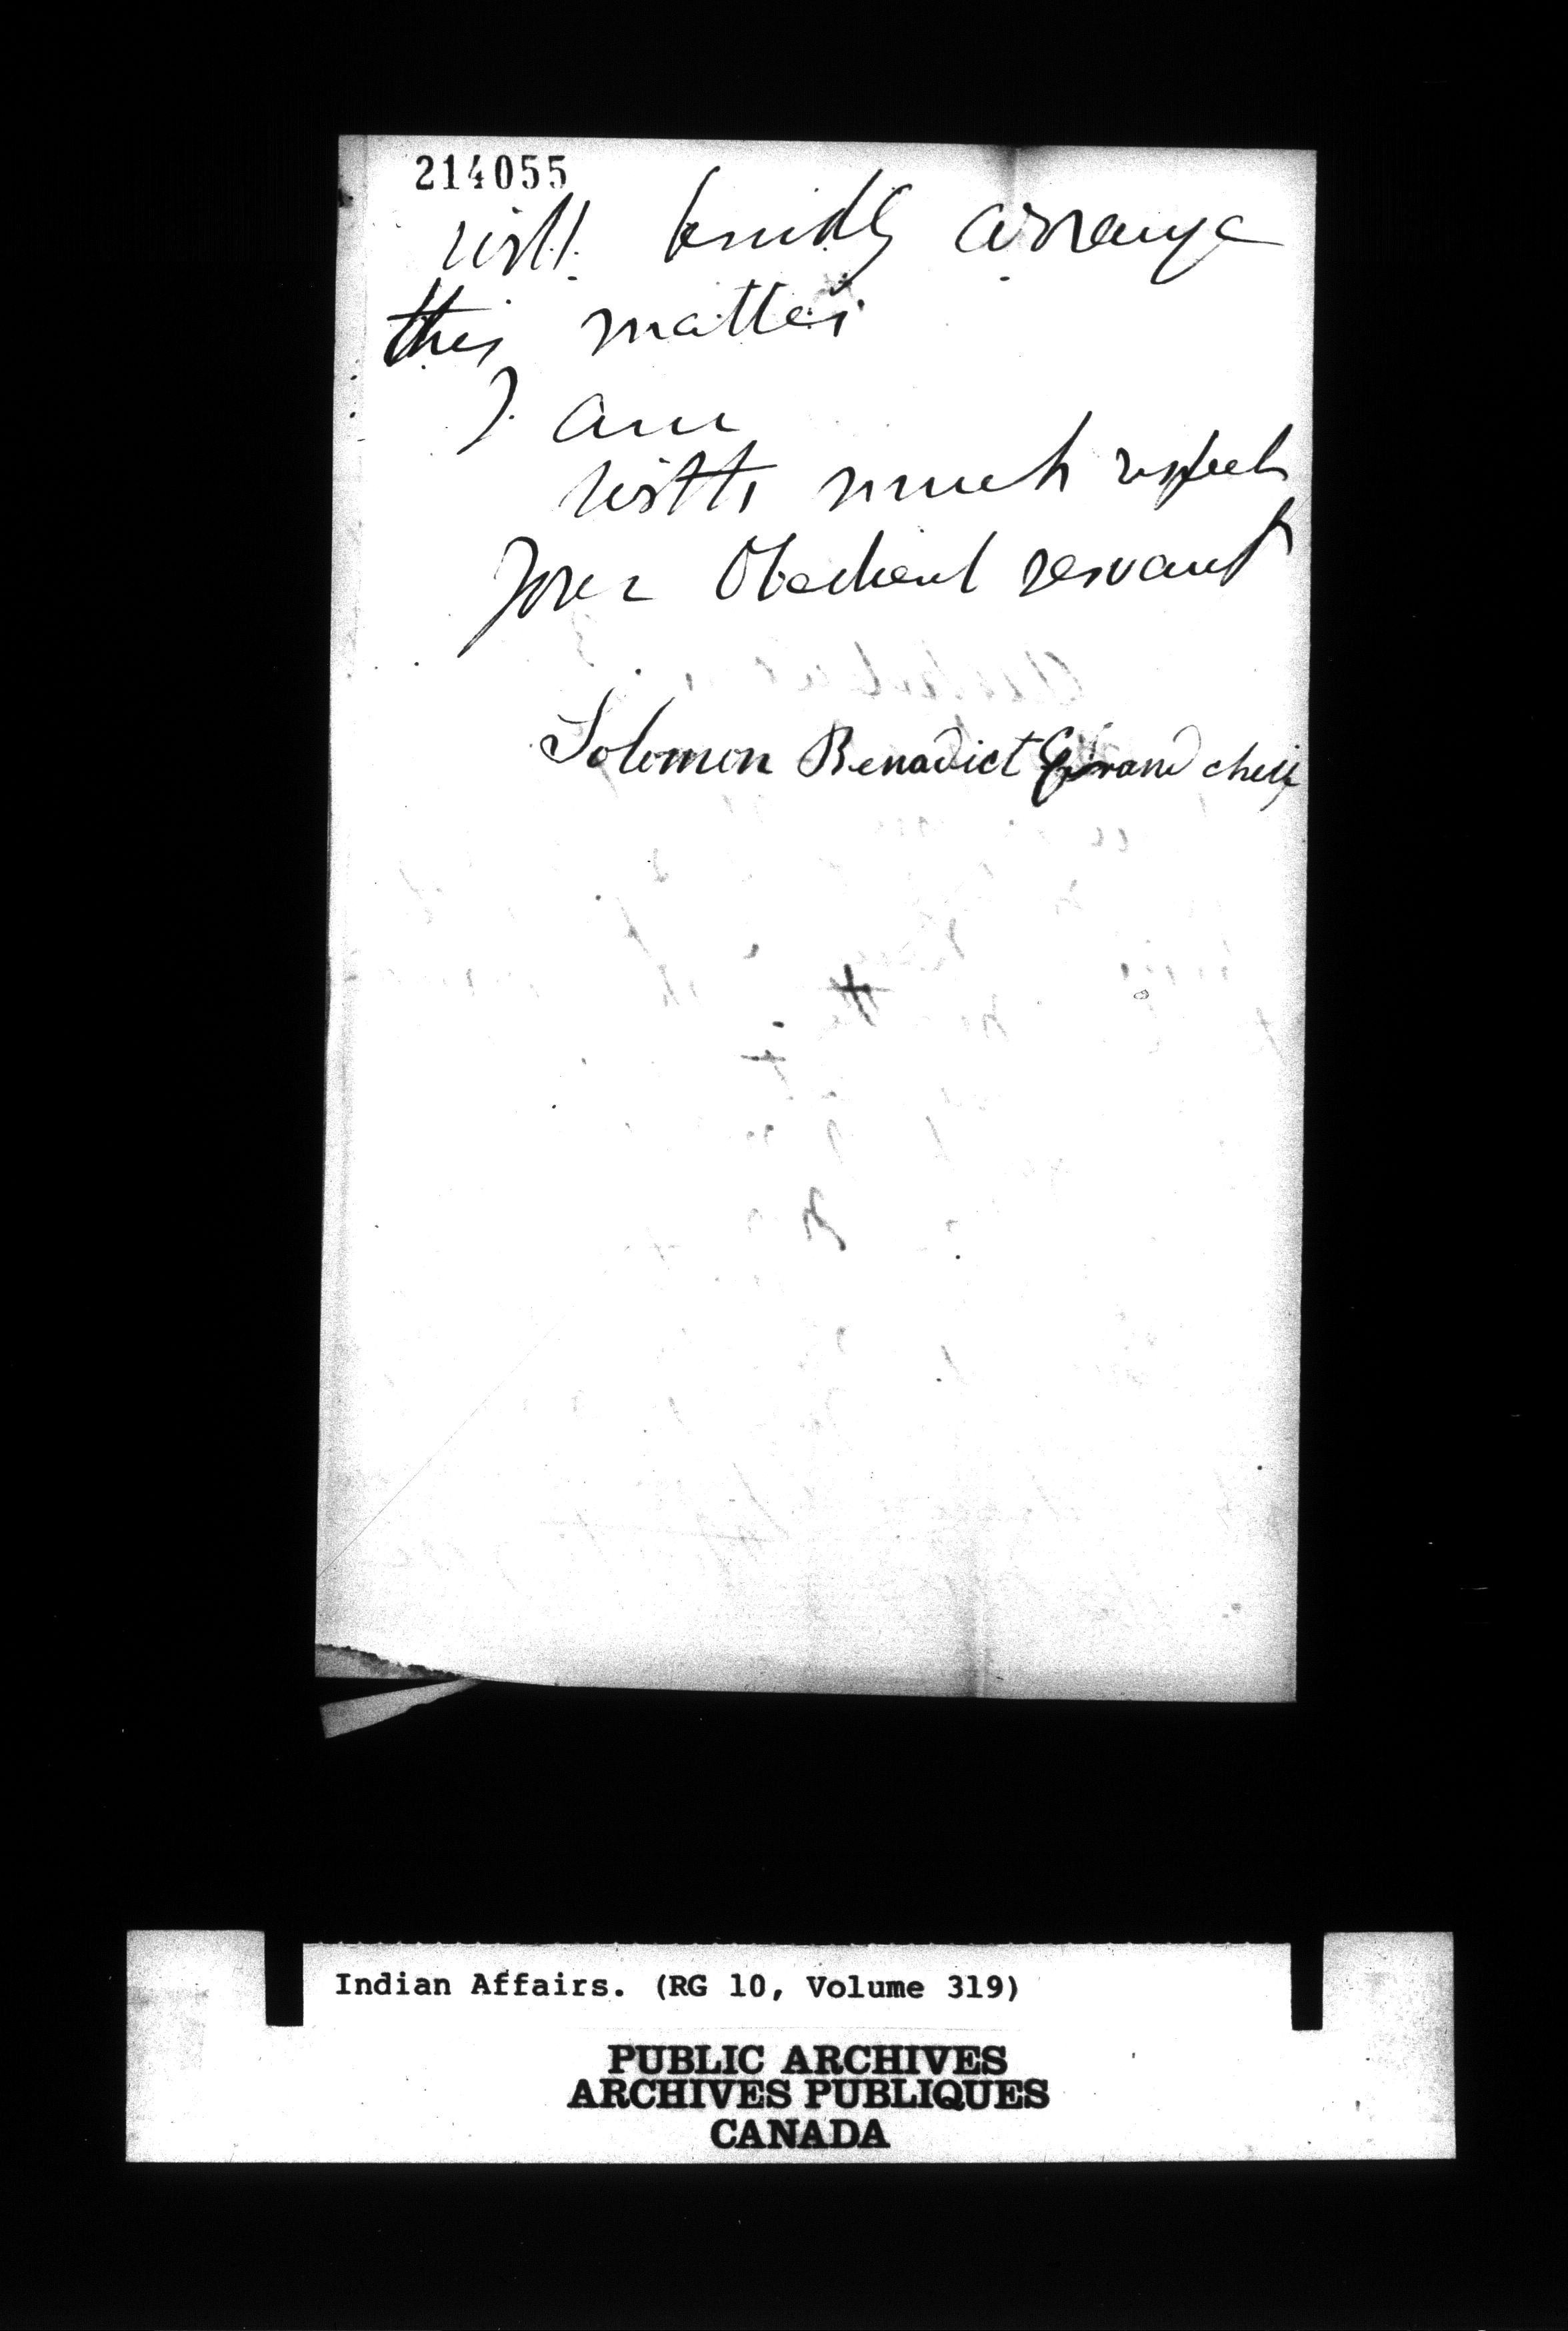 214055
will kindly arrange
this matter
I am
with much respect
Your Obedient servant
Solomon Benadict Grand cheif
Indian Affairs. (RG 10, Volume 319)
PUBLIC ARCHIVES
ARCHIVES PUBLIQUES
CANADA